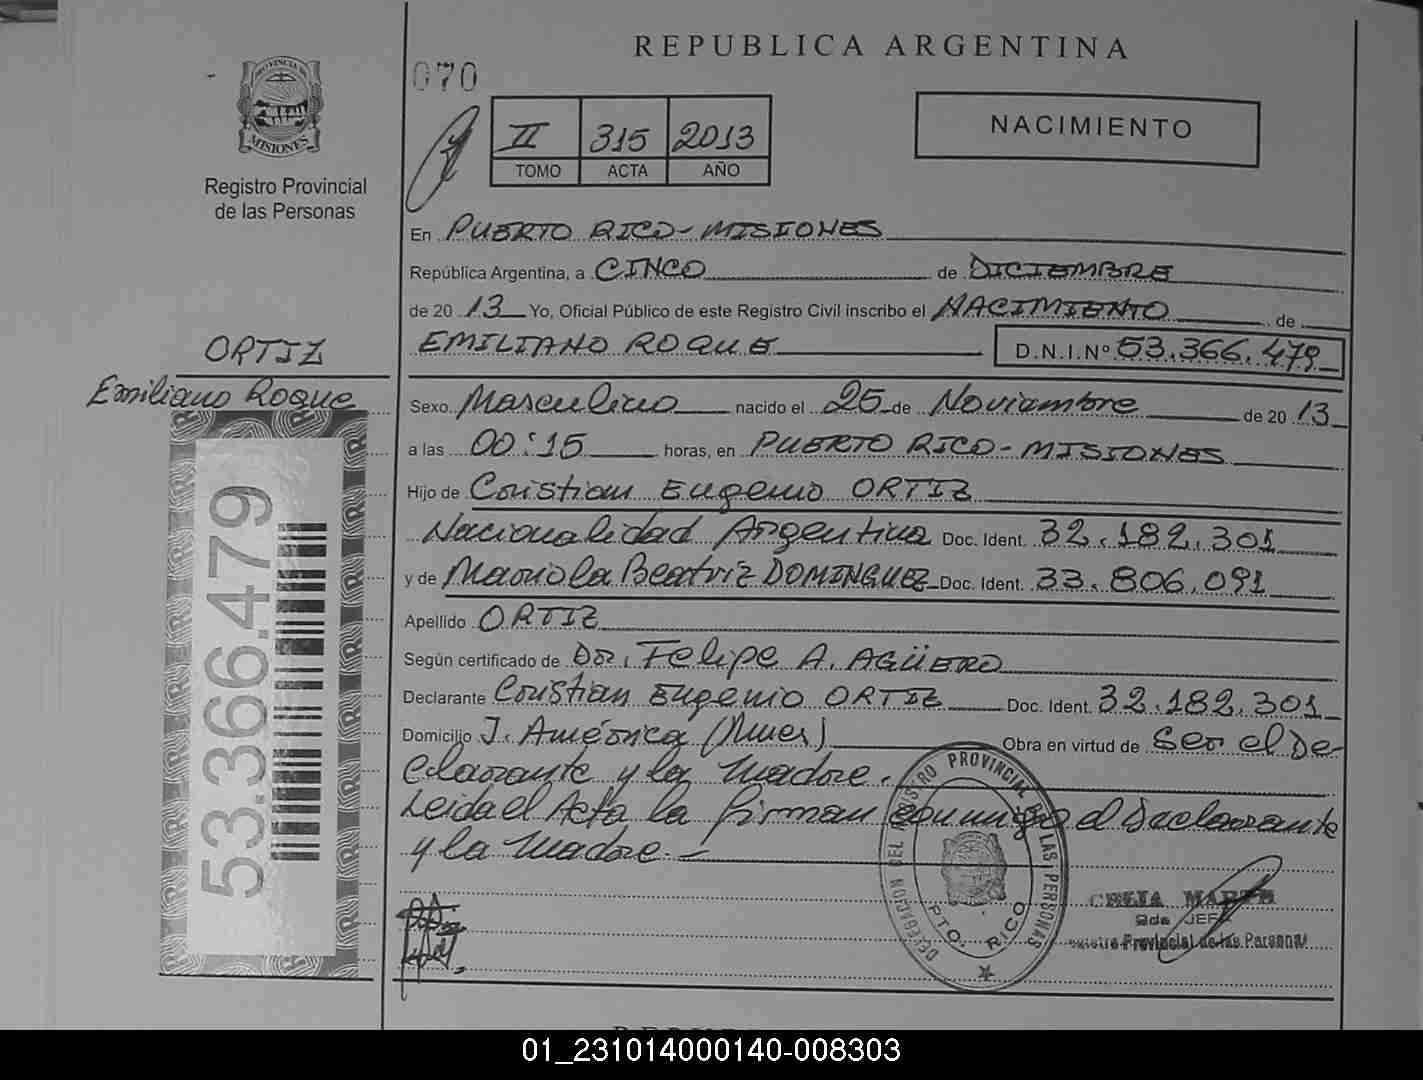 REPUBLICA ARGENTINA
PROVINCIA DE
MISIONES
Registro Provincial
de las Personas
070
II 315 2013
TOMO ACTA AÑO
NACIMIENTO
En PUERTO RICO - MISIONES
República Argentina, a CINCO de DICIEMBRE
de 20 13 Yo, Oficial Público de este Registro Civil inscribo el NACIMIENTO de
EMILIANO ROQUE D.N.I.Nº 53.366.479
ORTIZ
Emiliano Roque
53.366.479
Sexo Masculino nacido el 25 de Noviembre de 20 13
a las 00:15 horas, en PUERTO RICO - MISIONES
Hijo de Cristian Eugenio ORTIZ
Nacionalidad Argentina Doc. Ident. 32.182.301
y de Mariola Beatriz DOMINGUEZ Doc. Ident. 33.806.091
Apellido ORTIZ
Según certificado de Dr. Felipe A. AGÜERO
Declarante Cristian Eugenio ORTIZ Doc. Ident. 32.182.301
Domicilio J. América (Mnes) Obra en virtud de Ser el De-
clarante y la madre.
Leida el Acta la firman conmigo el Declarante
y la madre. -
DELEGACION DEL REGISTRO PROVINCIAL DE LAS PERSONAS
PTO. RICO
CELIA
2da JEFE
Registro Provincial de las Personas
01_231014000140-008303